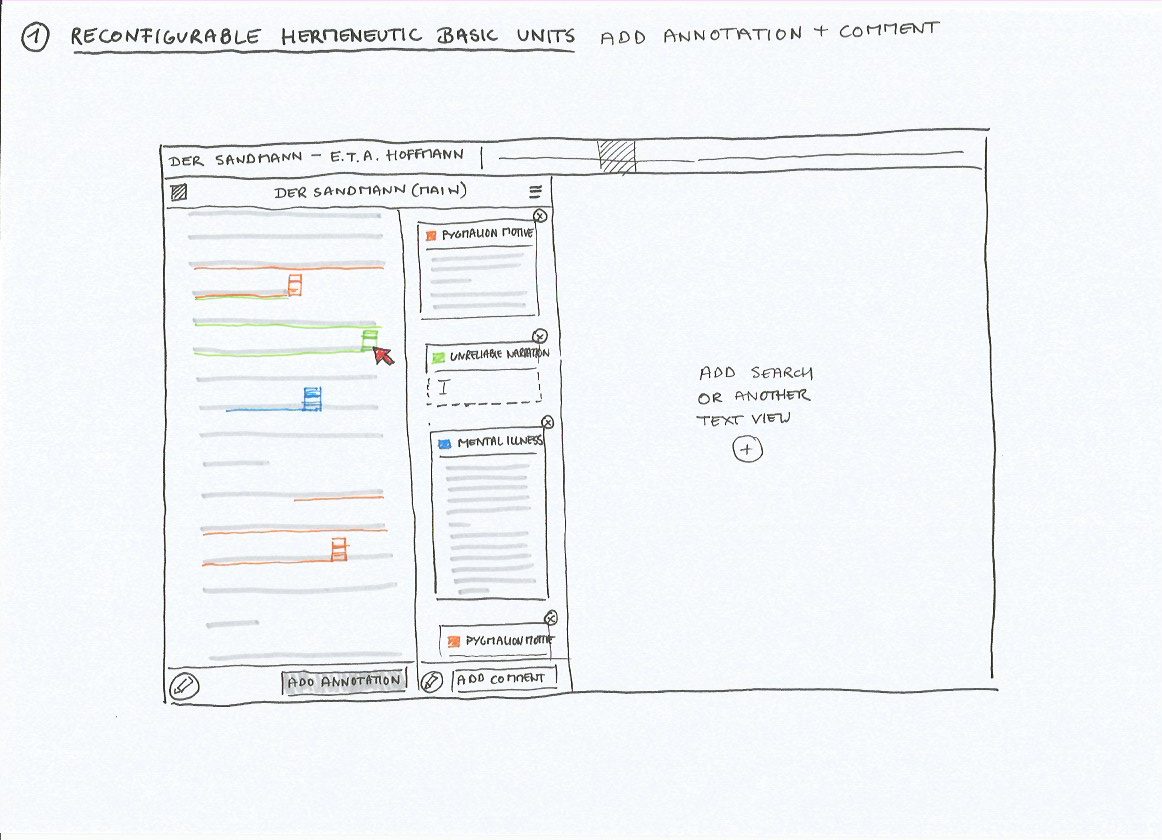 1 RECONFIGURABLE HERMENEUTIC BASIC UNITS ADD ANNOTATION + COMMENT
DER SANDMANN – E.T.A. HOFFMANN
DER SANDMANN (MAIN)
PYGMALION MOTIVE
UNRELIABLE NARRATION
MENTAL ILLNESS
PYGMALION MOTIVE
ADD ANNOTATION
ADD COMMENT
ADD SEARCH
OR ANOTHER
TEXT VIEW
+